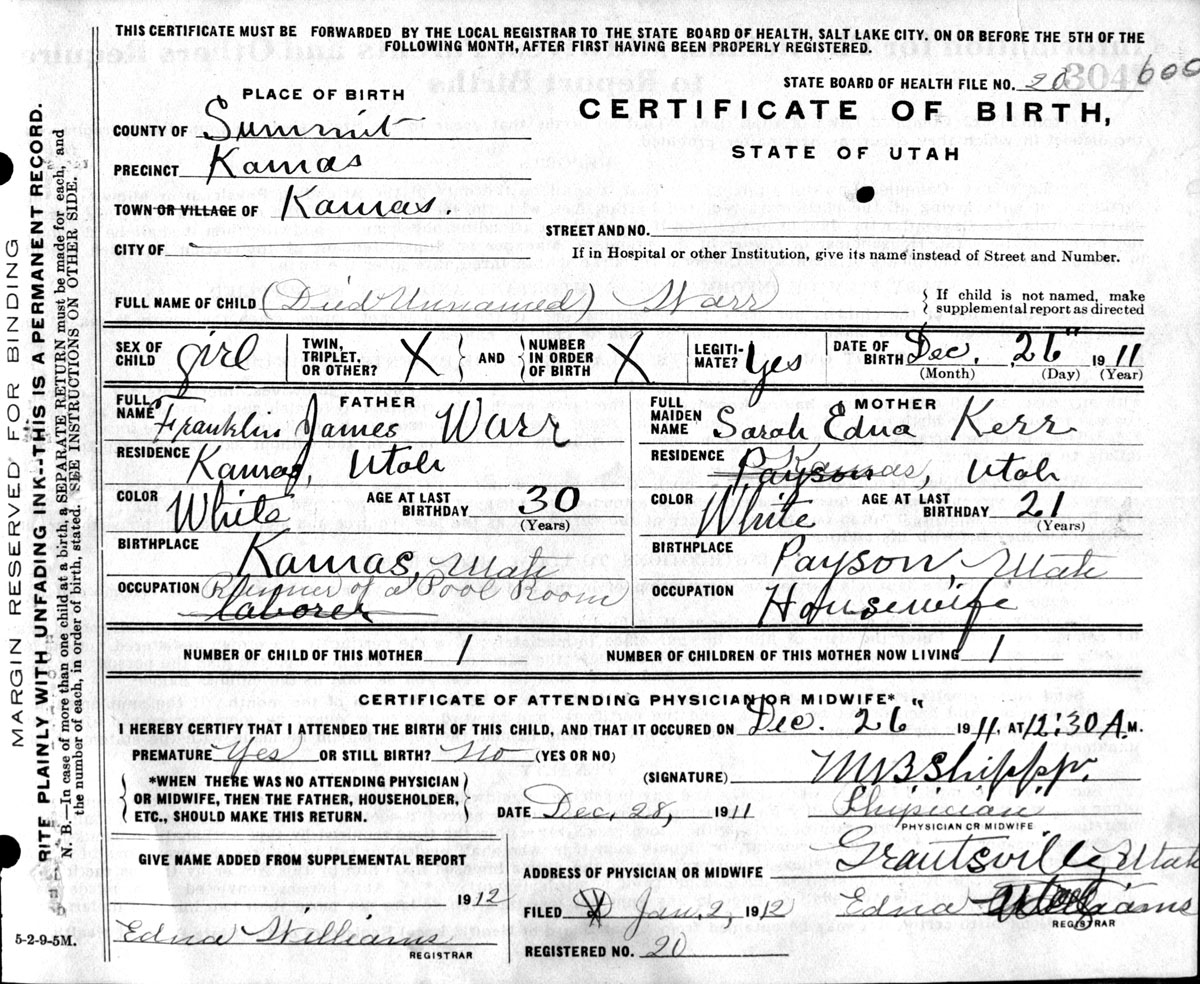 THIS CERTIFICATE MUST BE FORWARDED BY THE LOCAL REGISTRAR TO THE STATE BOARD OF HEALTH, SALT LAKE CITY, ON OR BEFORE THE 5TH OF THE
FOLLOWING MONTH, AFTER FIRST HAVING BEEN PROPERLY REGISTERED.
MARGIN RESERVED FOR BINDING
RITE PLAINLY WITH UNFADING INK--THIS IS A PERMANENT RECORD.
N. B.—In case of more than one child at a birth, a SEPARATE RETURN must be made for each, and
the number of each, in order of birth, stated. SEE INSTRUCTIONS ON OTHER SIDE.
STATE BOARD OF HEALTH FILE NO. 20 600
PLACE OF BIRTH
CERTIFICATE OF BIRTH,
STATE OF UTAH
COUNTY OF Summit
PRECINCT Kamas
TOWN OR VILLAGE OF Kamas.
STREET AND NO.
CITY OF -
If in Hospital or other Institution, give its name instead of Street and Number.
FULL NAME OF CHILD (Died Unnamed) Warr
If child is not named, make
supplemental report as directed
SEX OF CHILD girl TWIN, TRIPLET, OR OTHER? X AND NUMBER IN ORDER OF BIRTH X LEGITI-MATE? Yes DATE OF BIRTH Dec, 26" 1911
(Month) (Day) (Year)
FATHER
FULL NAME Franklin James Warr
RESIDENCE Kamas, Utah
COLOR White AGE AT LAST BIRTHDAY 30
(Years)
BIRTHPLACE Kamas, Utah
OCCUPATION Runner of a Pool Room
laborer
MOTHER
FULL MAIDEN NAME Sarah Edna Kerr
RESIDENCE Payson Kamas, Utah
COLOR White AGE AT LAST BIRTHDAY 21
(Years)
BIRTHPLACE Payson, Utah
OCCUPATION Housewife
NUMBER OF CHILD OF THIS MOTHER 1 NUMBER OF CHILDREN OF THIS MOTHER NOW LIVING 1
CERTIFICATE OF ATTENDING PHYSICIAN OR MIDWIFE*
I HEREBY CERTIFY THAT I ATTENDED THE BIRTH OF THIS CHILD, AND THAT IT OCCURED ON Dec. 26" 1911, AT 12:30 A. M.
PREMATURE Yes OR STILL BIRTH? No (YES OR NO)
*WHEN THERE WAS NO ATTENDING PHYSICIAN
OR MIDWIFE, THEN THE FATHER, HOUSEHOLDER,
ETC., SHOULD MAKE THIS RETURN.
(SIGNATURE) M B Shipp
DATE Dec, 28, 1911 Phipician
PHYSICIAN OR MIDWIFE
GIVE NAME ADDED FROM SUPPLEMENTAL REPORT
1912
Edna Williams
REGISTRAR
ADDRESS OF PHYSICIAN OR MIDWIFE Grantsville, Utah
FILED Jan. 2, 1912 Edna Williams
REGISTRAR
REGISTERED NO. 20
5-2-9-5M.